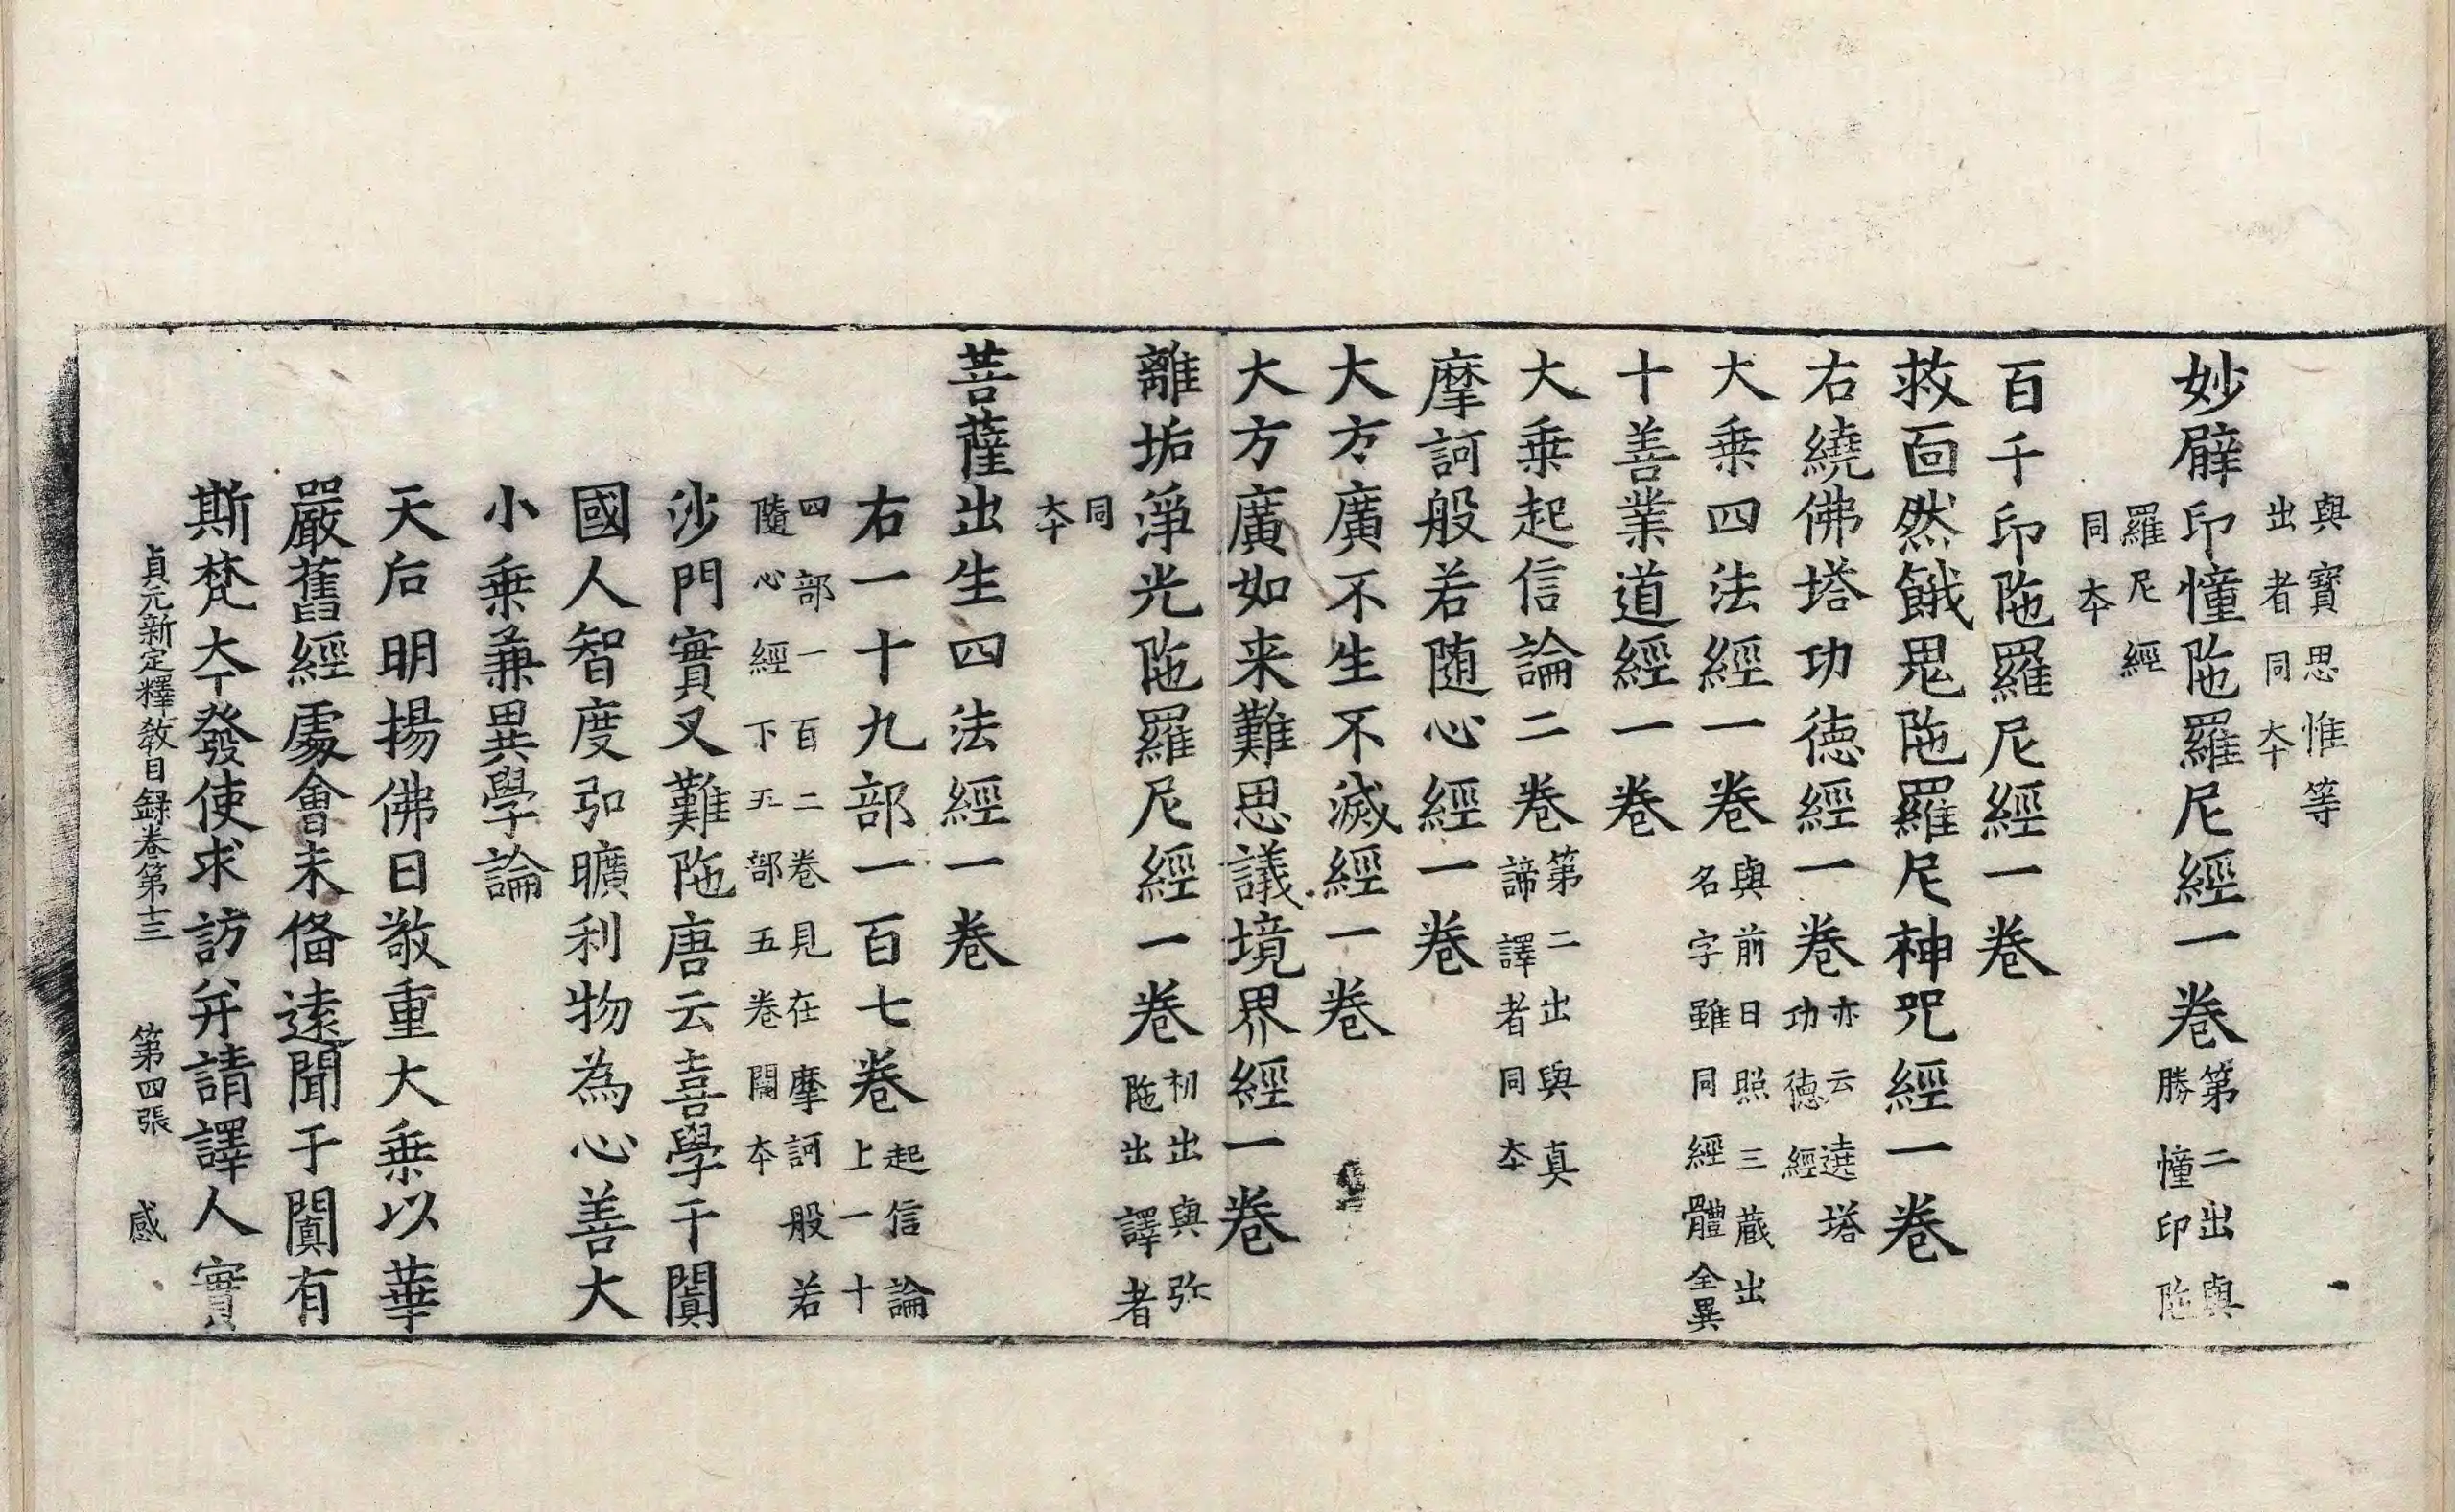 與寶思惟等
出者同夲
妙臂印幢陁羅尼經一卷第二出與
勝幢印陁
羅尼經
同夲
百千印陁羅尼經一卷
救面然餓鬼陁羅尼神咒經一卷
右繞佛塔功德經一卷亦云遶塔
功德經
大乘四法經一卷與前日照三藏出
名字雖同經體全異
十善業道經一卷
大乘起信論二卷第二出與真
諦譯者同夲
摩訶般若随心經一卷
大方廣不生不滅經一卷
大方廣如来難思議境界經一卷
離垢淨光陁羅尼經一卷初出與弥
陁出譯者
同
夲
菩薩出生四法經一卷
右一十九部一百七卷起信論
上一十
四部一百二卷見在摩訶般若
隨心經下五部五卷闕夲
沙門實叉難陁唐云喜學于闐
國人智度弘曠利物為心善大
小乗兼異學論
天后明揚佛日敬重大乗以華
嚴舊經處會未俻遠聞于闐有
斯梵夲發使求訪并請譯人實
貞元新定釋教目録卷第十三　第四張　感